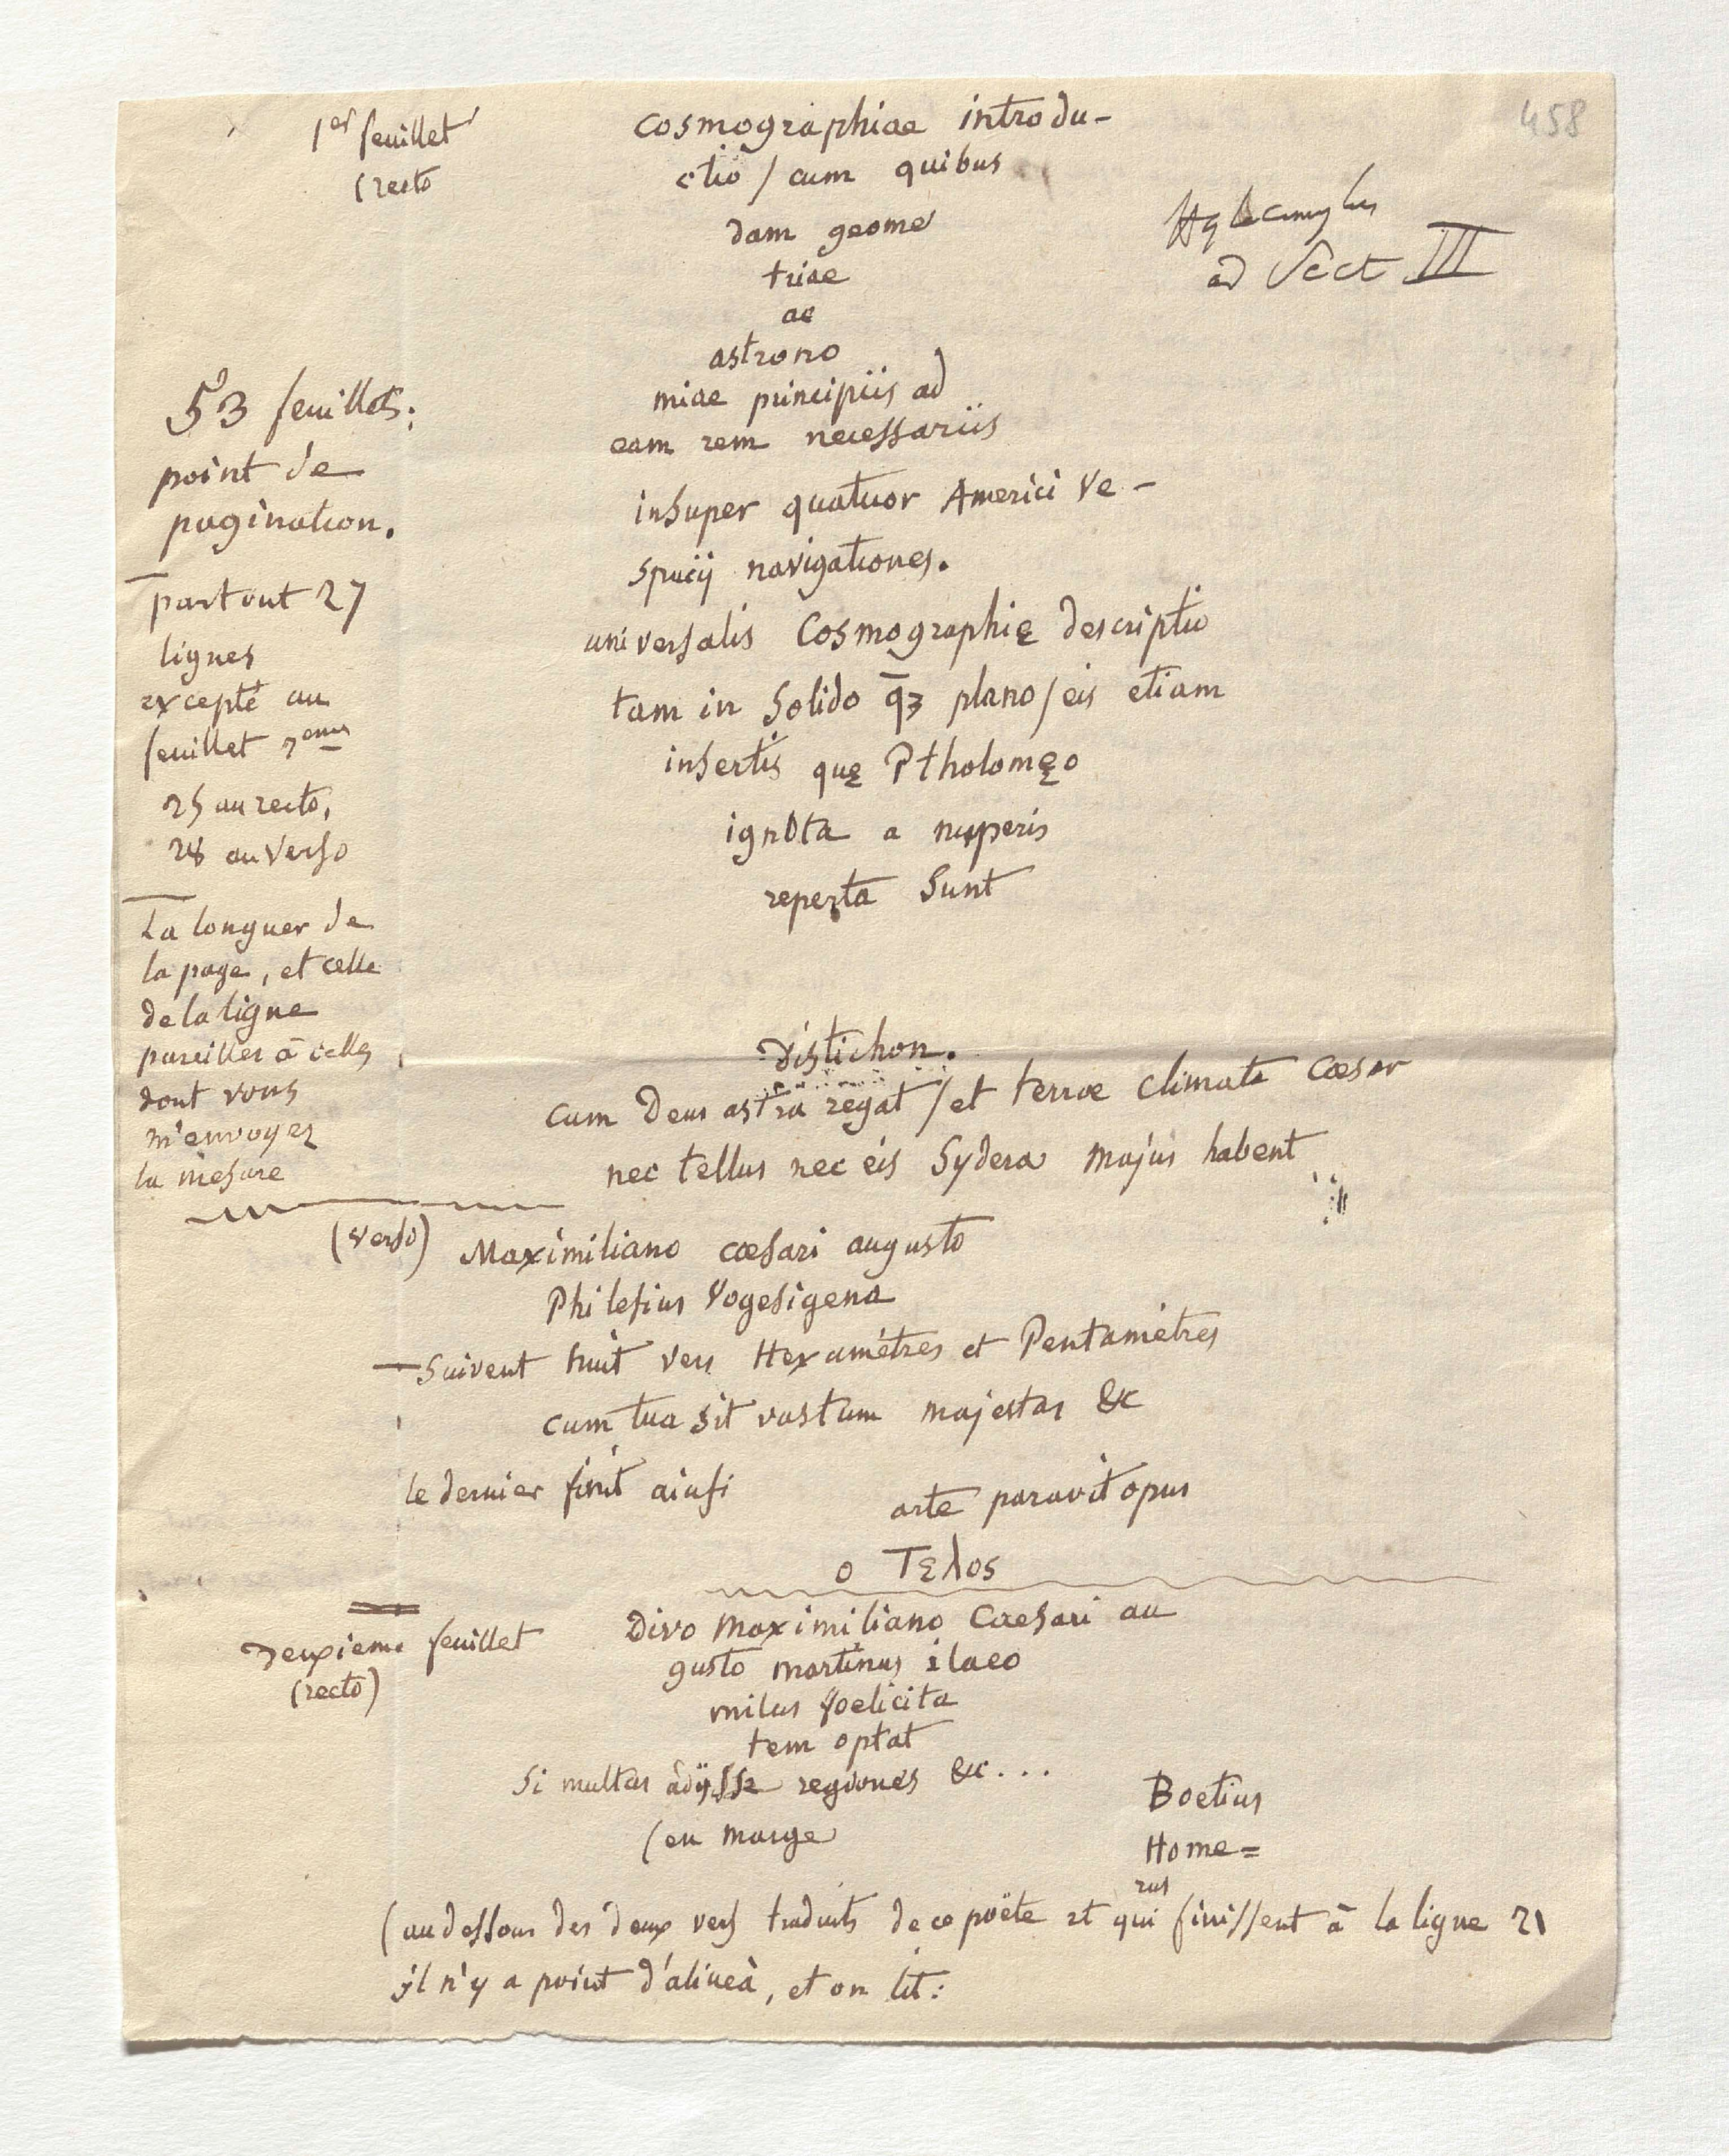 458
1er feuillet
(recto
Cosmographiae introdu-
ctiō / cum quibus
dam geome
triae
ac
astrono
miae principiis ad
eam rem necessariis
insuper quatuor Americi Ve-
spucij navigationes.
universalis Cosmographię descriptio
tam in Solido q̄ȝ plano / eis etiam
insertis quę Ptholomęo
ignota a nuperis
reperta Sunt
Hylacomylus
ad Sect III
53 feuillets;
point de
pagination.
partout 27
lignes
excepté au
feuillet
25 au recto,
28 au Verso
La longuer de
la page, et celle
de la ligne
pareilles à celles
dont vous
m'envoyez
la mesure
Distichon.
Cum Deus astra regat / et terrae climata Caesar
nec tellus nec eis Sydera majus habent
(verso)
Maximiliano caesari augusto
Philesius Vogesigena
Suivent huit vers Hexamétres et Pentamétres
cum tua sit vastum majestas &c
le dernier finit ainsi
arte paravit opus
o Τελος
Deuxieme feuillet
(recto)
Divo Maximiliano Caesari au
gusto martinus ilaco
milus foelicita
tem optat
Si multas adijsse regiones &c...
(en marge
Boetius
Home=
rus
(au dessous des deux vers traduits de ce poëte et qui finissent à la ligne 21
il n'y a point d'alinea, et on lit: